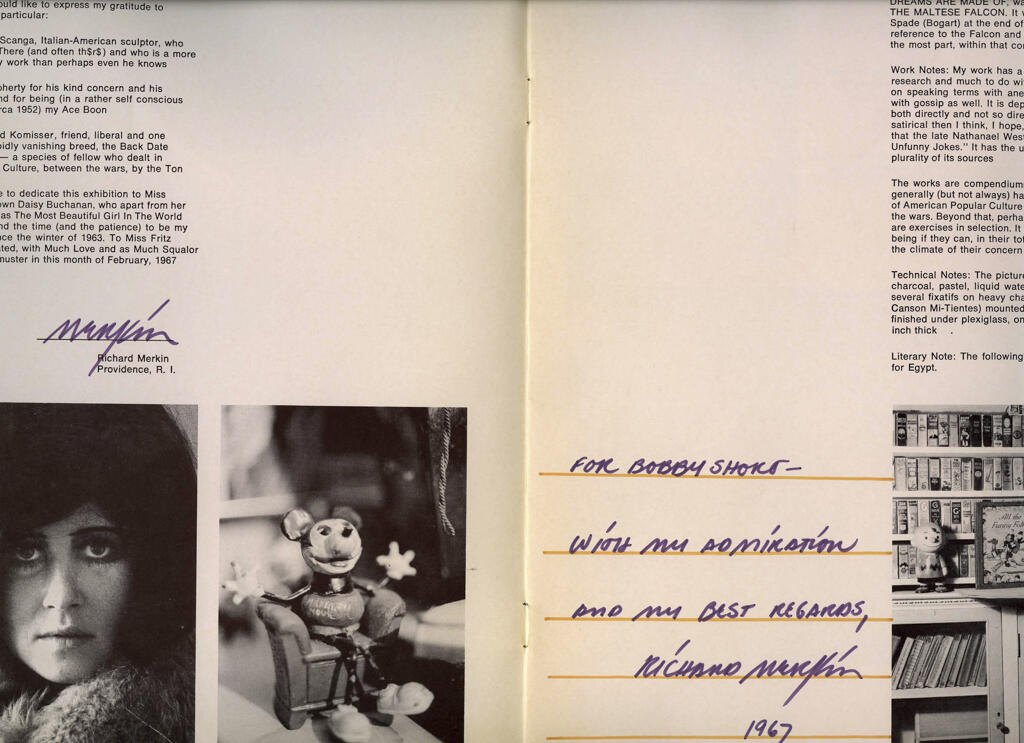 ould like to express my gratitude to
particular:
Scanga, Italian-American sculptor, who
There (and often th$r$) and who is a more
work than perhaps even he knows
oherty for his kind concern and his
nd for being (in a rather self conscious
rca 1952) my Ace Boon
d Komisser, friend, liberal and one
pidly vanishing breed, the Back Date
— a species of fellow who dealt in
Culture, between the wars, by the Ton
e to dedicate this exhibition to Miss
own Daisy Buchanan, who apart from her
as The Most Beautiful Girl In The World
nd the time (and the patience) to be my
nce the winter of 1963. To Miss Fritz
ated, with Much Love and as Much Squalor
muster in this month of February, 1967
Merkin
Richard Merkin
Providence, R. I.
FOR BOBBY SHORT—
WITH MY ADMIRATION
AND MY BEST REGARDS,
RICHARD MERKIN
1967
DREAMS ARE MADE OF, wa
THE MALTESE FALCON. It w
Spade (Bogart) at the end of
reference to the Falcon and
the most part, within that con
Work Notes: My work has a
research and much to do wi
on speaking terms with ane
with gossip as well. It is dep
both directly and not so dire
satirical then I think, I hope,
that the late Nathanael Wes
Unfunny Jokes." It has the u
plurality of its sources
The works are compendium
generally (but not always) ha
of American Popular Culture
the wars. Beyond that, perha
are exercises in selection. It
being if they can, in their tot
the climate of their concern
Technical Notes: The picture
charcoal, pastel, liquid wate
several fixatifs on heavy cha
Canson Mi-Tientes) mounted
finished under plexiglass, on
inch thick .
Literary Note: The following
for Egypt.
All the
Funny Fol